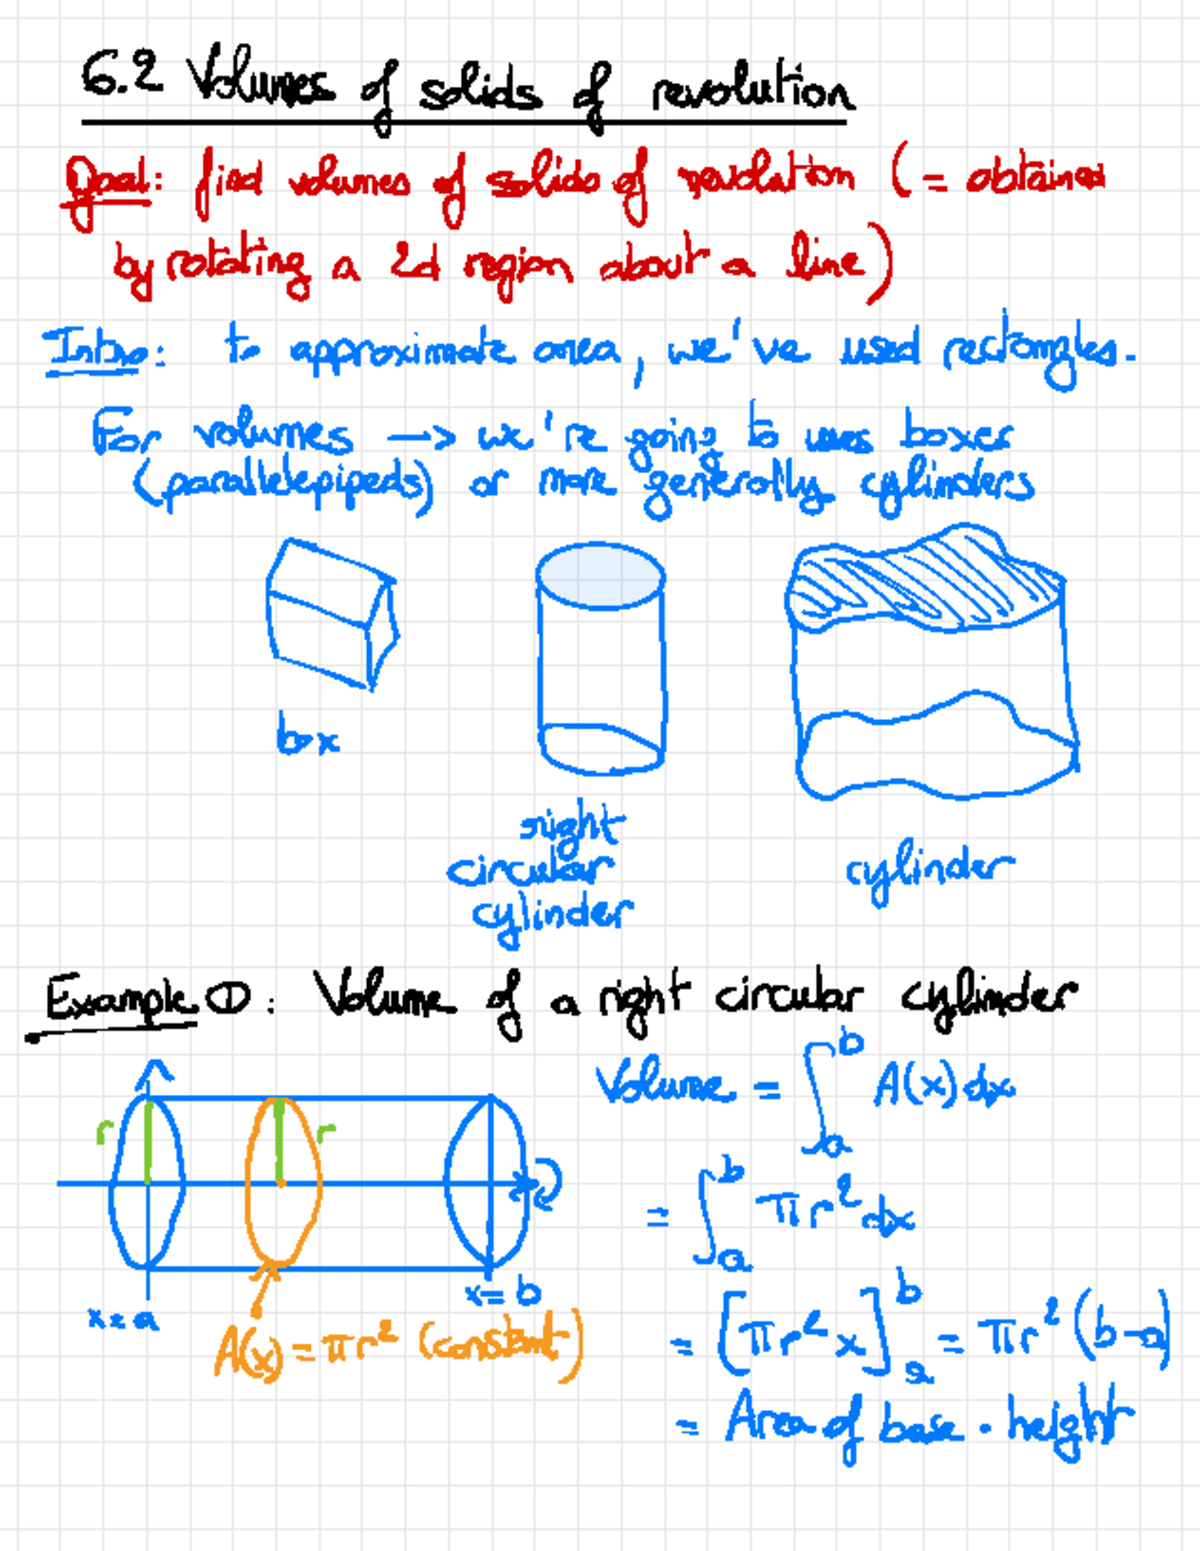 6.2 Volumes of solids of revolution
Goal: find volumes of solids of revolution (= obtained
by rotating a 2d region about a line)
Intro: to approximate area, we've used rectangles.
For volumes → we're going to uses boxes
(parallelepipeds) or more generally cylinders
box
right
circular
cylinder
cylinder
Example ①: Volume of a right circular cylinder
r
r
x=a
x=b
A(x) = πr² (constant)
Volume = ∫_a^b A(x) dx
= ∫_a^b πr² dx
= [πr² x]_a^b = πr² (b-a)
= Area of base · height